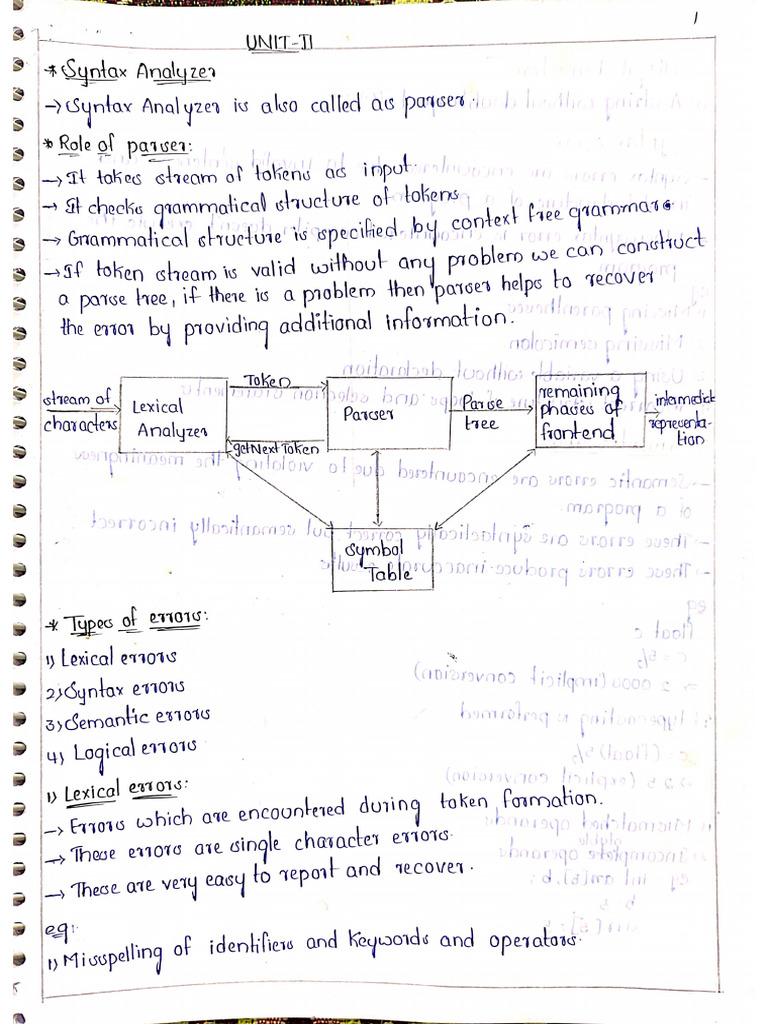 1
UNIT-II
* Syntax Analyzer
→ Syntax Analyzer is also called as parser.
* Role of parser:
→ It takes stream of tokens as input.
→ It checks grammatical structure of tokens
→ Grammatical structure is specified by context free grammars.
→ If token stream is valid without any problem we can construct
a parse tree, if there is a problem then parser helps to recover
the error by providing additional information.
stream of
characters
Lexical
Analyzer
Token
getNextToken
Parser
Parse
tree
remaining
phases of
frontend
intermediate
representa-
tion
Symbol
Table
* Types of errors:
1) Lexical errors
2) Syntax errors
3) Semantic errors
4) Logical errors
1) Lexical errors:
→ Errors which are encountered during token formation.
→ These errors are single character errors.
→ These are very easy to report and recover.
eg:
1) Misspelling of identifiers and keywords and operators.